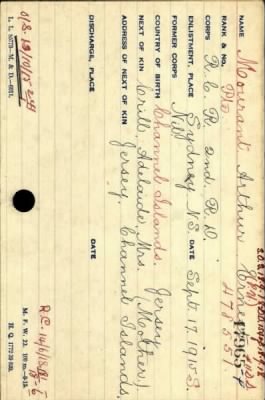 NAME Mourant Arthur Ernest
RANK & No. Pte. 477853
R.C.R. 2nd. R.D.
ENLISTMENT, PLACE Sydney N.S. DATE Sept. 17. 1915.
FORMER CORPS Nil
COUNTRY OF BIRTH Channel Islands. Jersey
NEXT OF KIN Crill, Adelaide, Mrs. (Mother)
ADDRESS OF NEXT OF KIN Jersey, Channel Islands.
DISCHARGE, PLACE DATE
L. L. 55773—M. & D.—
M. F. W. 22.
H. Q. 1772-39-